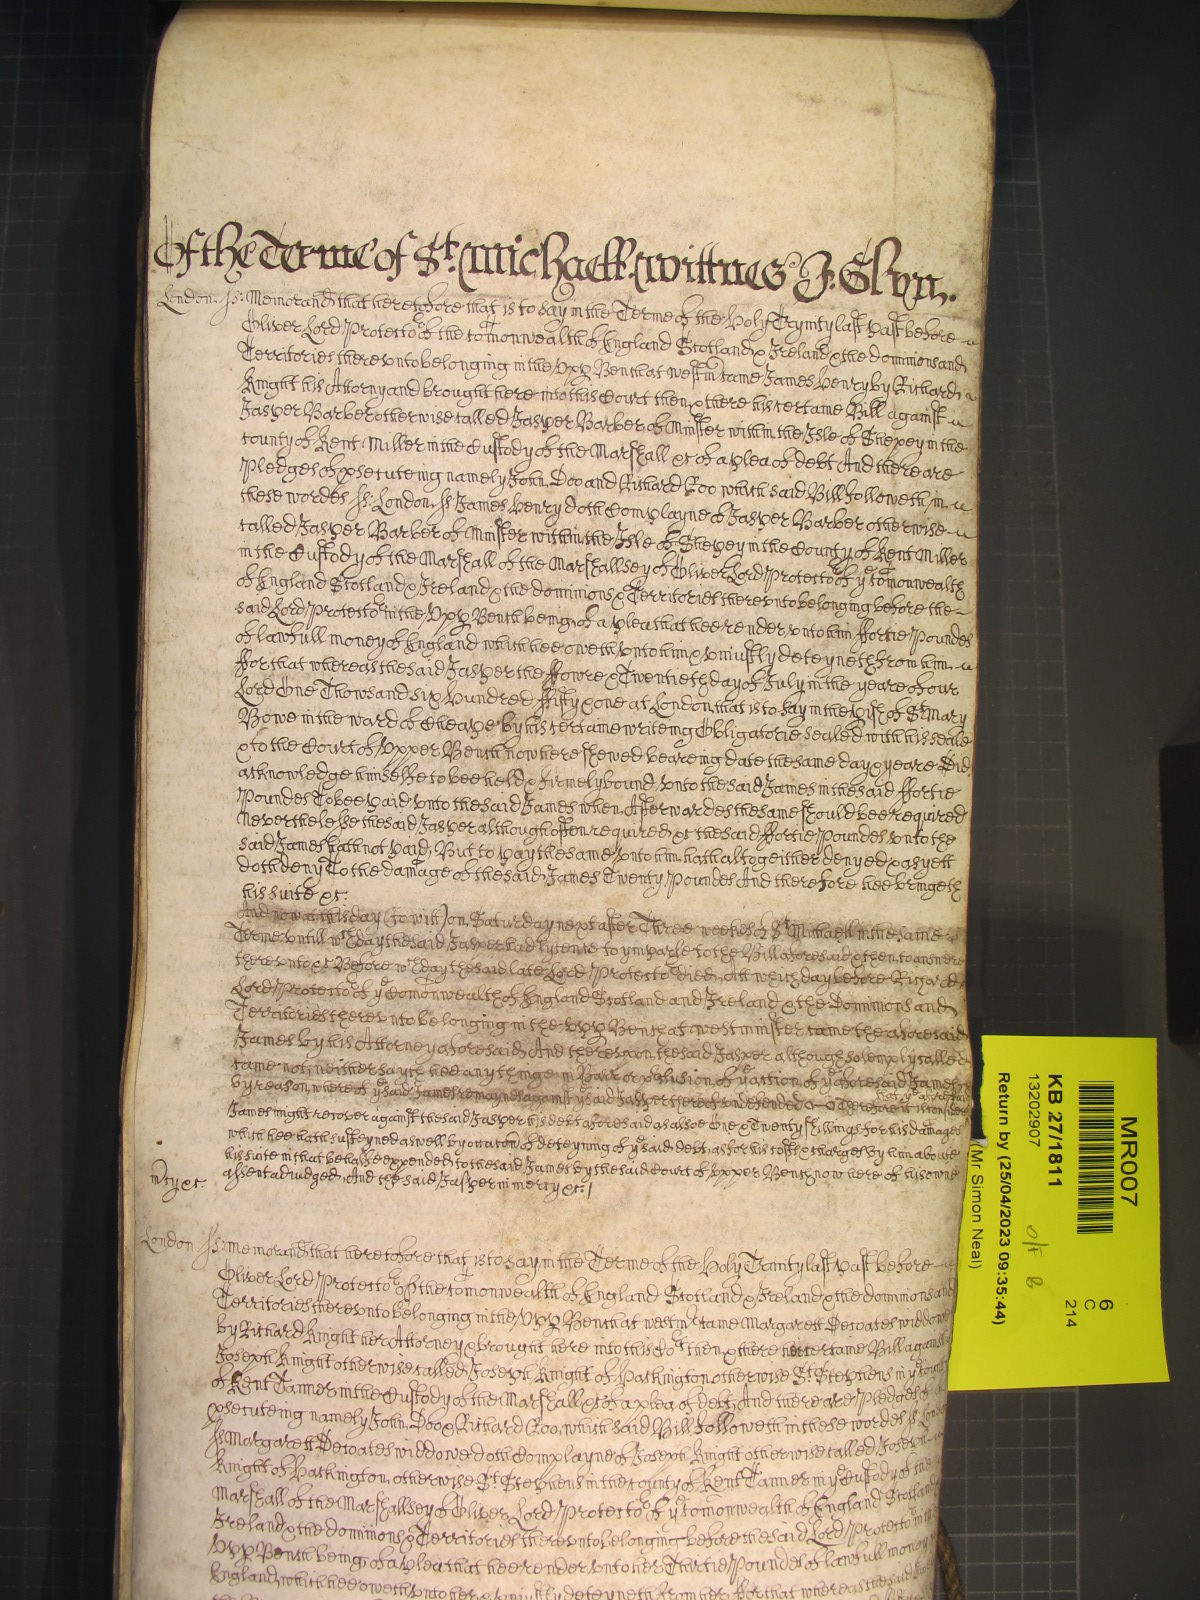 Of the Terme of St. Michaell. Wittnes J: Glyn.
London. ss: Memorand that heretofore that is to say in the Terme of the Holy Trynity last past before
Oliver Lord Protector of the Comonwealth of England Scotland & Ireland & the dominions and
Territories thereunto belonging in the Upp Bench at Westm came James Henry by Richard
Knight his Attorny and brought here into this Court then & there his certaine Bill against
Jasper Barber otherwise called Jasper Barber of Minster within the Isle of Shepey in the
County of Kent Miller in the Custody of the Marshall &c of a plea of debt And there are
Pledges of psecuteing namely John Doo and Richard Roo which said Bill followeth in
these wordes ss: London ss James Henry doth Complayne of Jasper Barber otherwise
called Jasper Barber of Minster within the Isle of Shepey in the County of Kent Miller
in the Custody of the Marshall of the Marshallsey of Oliver Lord Protector of ye Comonwealth
of England Scotland & Ireland & the dominions & Territories thereunto belonging before the
said Lord Protector in the Upp Bench being of a plea that hee render unto him ffortie Poundes
of lawfull money of England which hee oweth unto him & uniustly deteyneth from him
ffor that whereas the said Jasper the ffowre & Twentieth day of July in the yeare of our
Lord One Thousand six Hundred ffifty & one at London that is to say in the pish of St Mary
Bowe in the ward of Cheape by his certaine writeing Obligatorie sealed with his seale
& to the Court of Upper Bench now here shewed beareing date the same day & yeare Did
acknowledge himselfe to bee held & firmely bound unto the said James in the said ffortie
Poundes To bee paid unto the said James when Afterwardes the same should bee required
Neverthelesse the said Jasper although often required &c the said ffortie Poundes unto the
said James hath not paid, But to pay the same unto him hath altogeither denyed & as yett
doth deny To the damage of the said James Twenty Poundes And therefore hee bringeth
his suite &c:
And now at this day (to witt) on Saturday next after Three weekes of St Michaell in the same
Terme untill wch day the said Jasper had lycence to imparle to the Bill aforesaid & then to answere
thereunto &c Before wch day the said late Lord Protector died, Att which day before Richard
Lord Protector of ye Comonwealth of England Scotland and Ireland & the Dominions and
Territories thereunto belonging in the Upp Bench at Westminster came the aforesaid
James by his Attorney aforesaid And thereupon the said Jasper although solemply called
came not, neither sayth hee any thinge in Barr or pclusion of ye action of ye aforesaid James
by reason whereof ye said James remaynes against ye said Jasper thereof undefended Therefore it is considered
that ye aforesaid
James might recover against the said Jasper his debt aforesaid as alsoe One & Twenty shillings for his damages
which hee hath susteyned aswell by occacon of deteyning of ye said debt, as for his costs & charges by him about
his suite in that behalfe expended to the said James by the said Court of Upper Bench now here of his owne
assent adiudged, And the said Jasper in mercy &c:
mcy &c
London ss: Memorand that heretofore that is to say in the Terme of the Holy Trinity last past before
Oliver Lord Protector of the Comonwealth of England Scotland & Ireland & the dominions and
Territories thereunto belonging in the Upp Bench at Westm came Margarett widdowe
by Richard Knight her Attorney & brought here into this Cort then & there her certaine Bill against
Joseph Knight otherwise called Joseph Knight of Hackington otherwise St Stephens in ye County
of Kent Tanner in the Custody of the Marshall &c of a plea of debt, And there are Pledges of
psecuteing namely John Doo & Richard Roo, which said Bill followeth in these wordes ss London
ss Margarett widdowe doth Complayne of Joseph Knight otherwise called Joseph
Knight of Hackington otherwise St Stephens in the County of Kent Tanner in ye Custody of the
Marshall of the Marshallsey of Oliver Lord Protector of ye Comonwealth of England Scotland
Ireland & the dominions & Territories thereunto belonging before the said Lord Protector in the
Upp Bench being of a plea that hee render unto her Thirtie Poundes of lawfull money
England, which hee oweth unto her & uniustly deteyneth from her ffor that whereas the said
MR007
6
C
214
KB 27/1811
13202907
O/F B
Return by (25/04/2023 09:35:44)
(Mr Simon Neal)